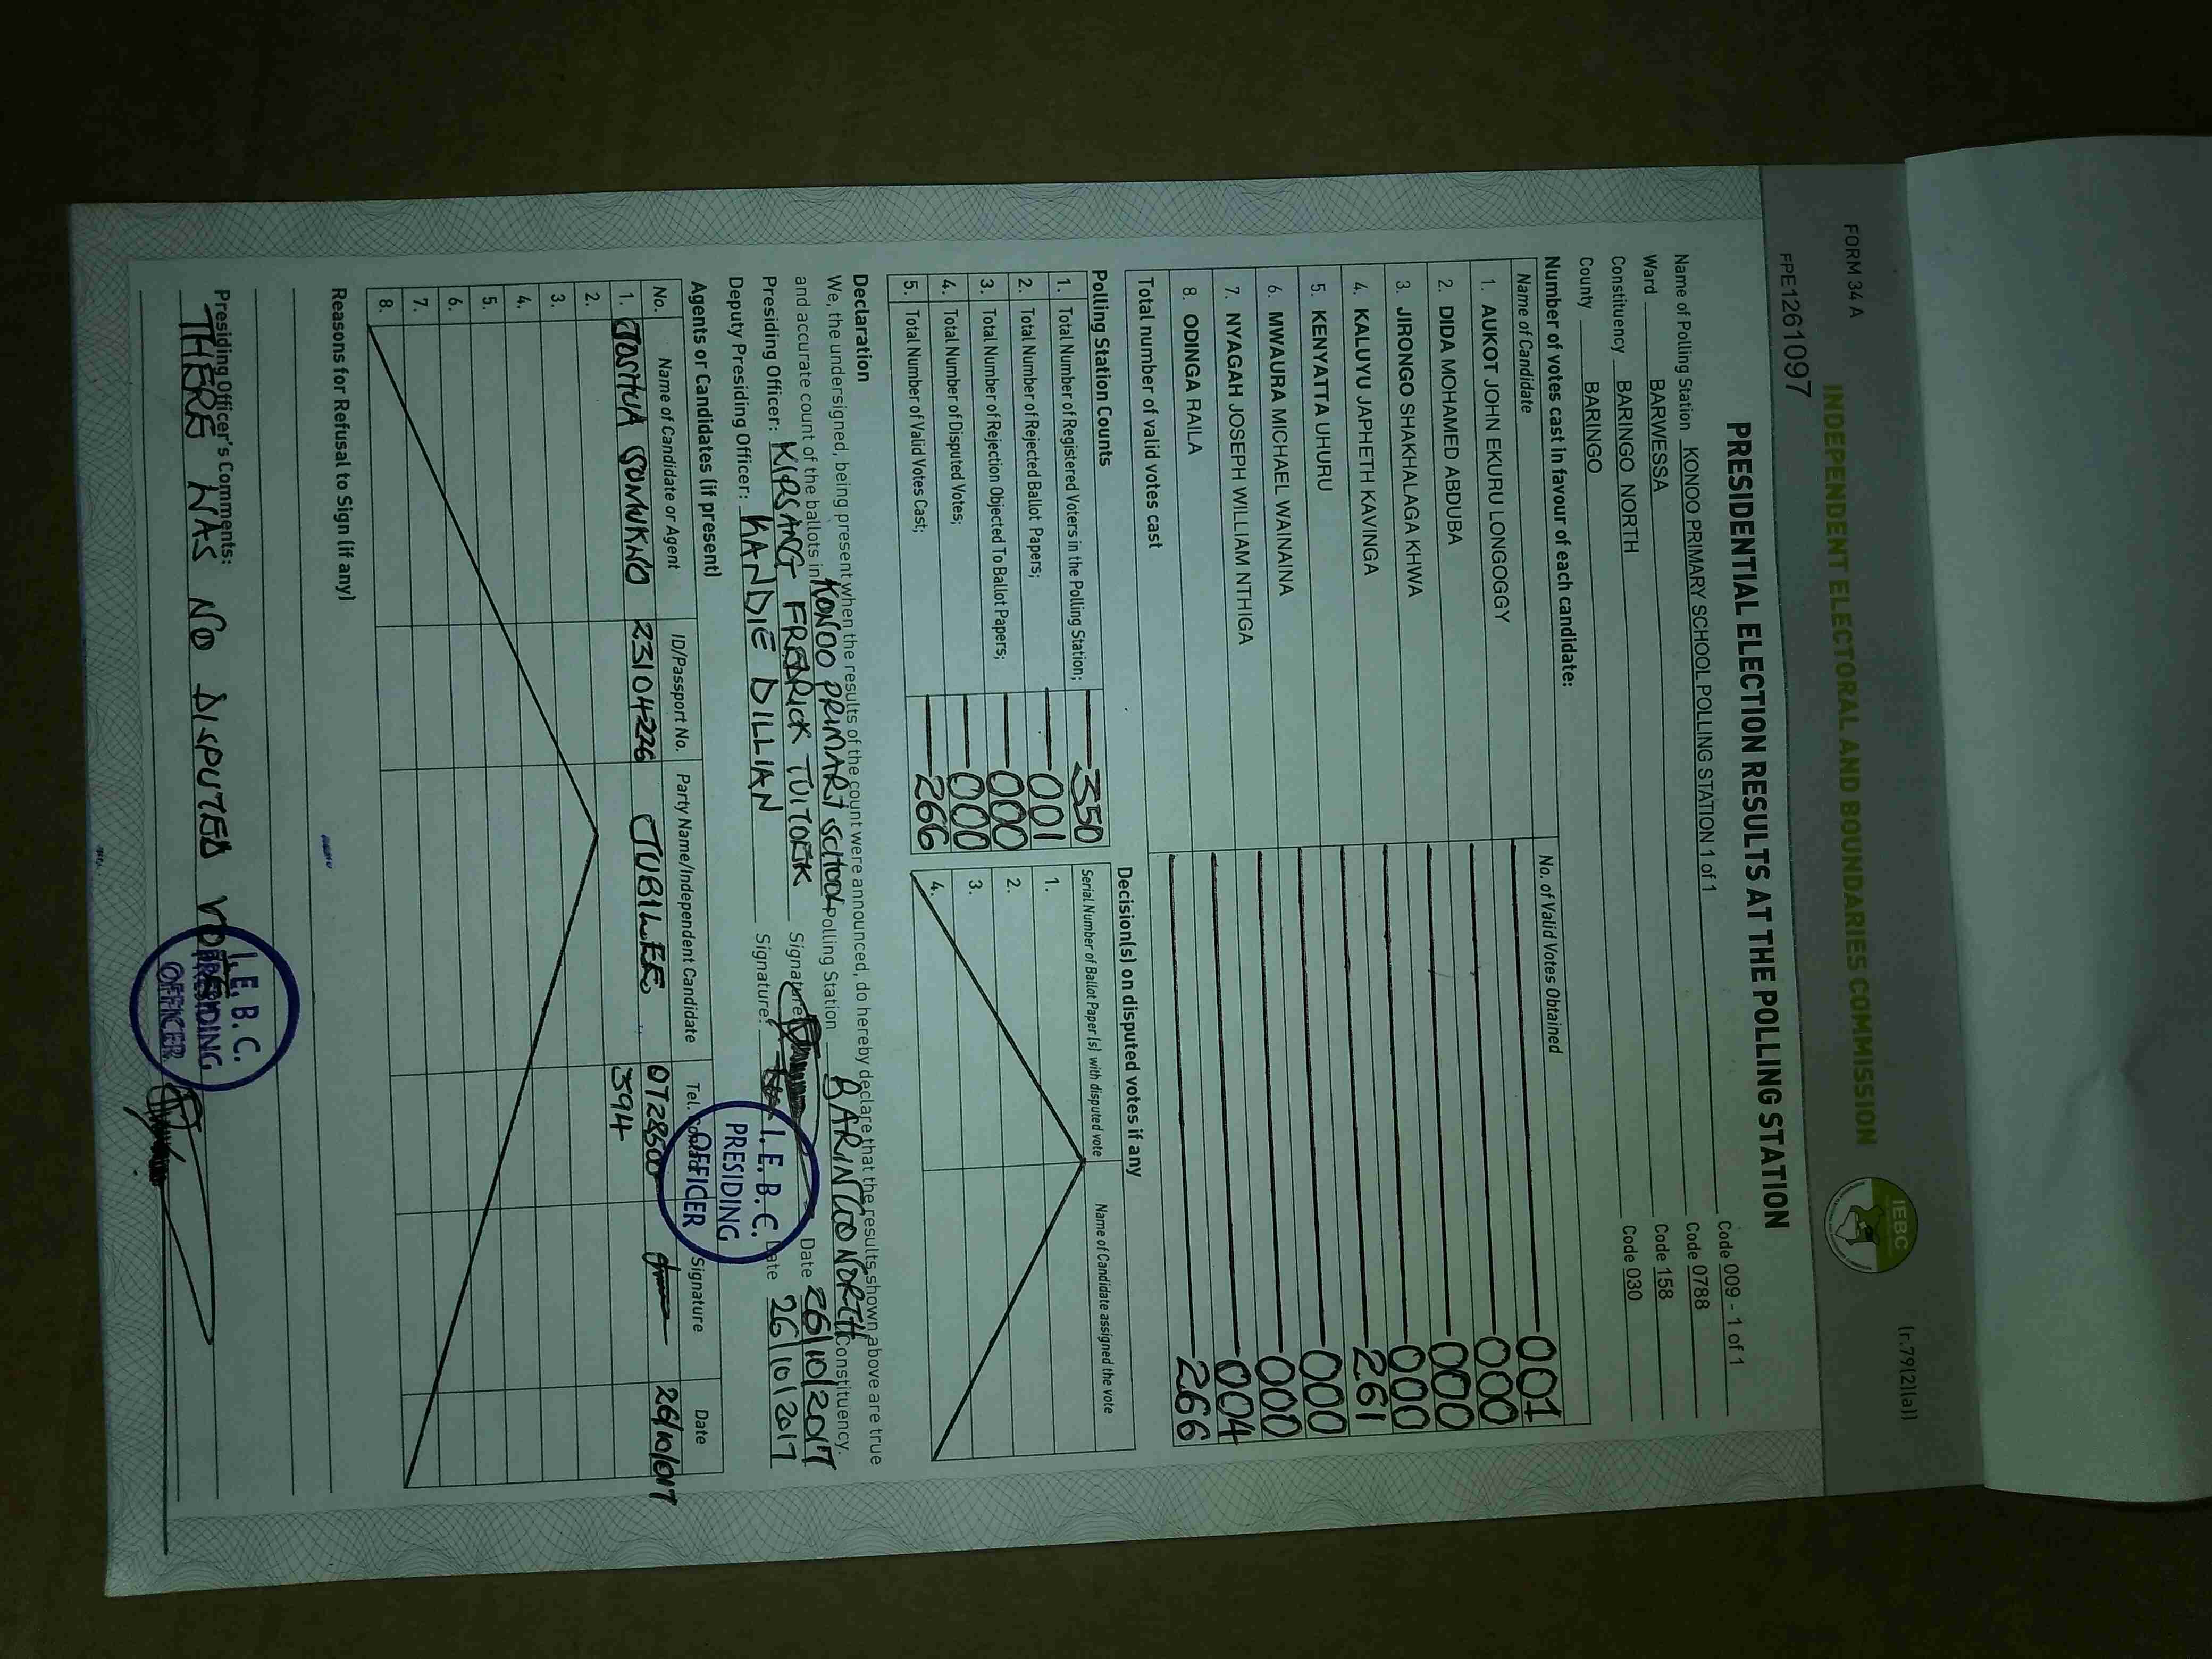 FORM 34 A
(r.79(2)(a))
INDEPENDENT ELECTORAL AND BOUNDARIES COMMISSION
IEBC
FPE1261097
PRESIDENTIAL ELECTION RESULTS AT THE POLLING STATION
Name of Polling Station KONOO PRIMARY SCHOOL POLLING STATION 1 of 1 Code 009 - 1 of 1
Ward BARWESSA Code 0788
Constituency BARINGO NORTH Code 158
County BARINGO Code 030
Number of votes cast in favour of each candidate:
Name of Candidate No. of Valid Votes Obtained
1. AUKOT JOHN EKURU LONGOGGY 001
2. DIDA MOHAMED ABDUBA 000
3. JIRONGO SHAKHALAGA KHWA 000
4. KALUYU JAPHETH KAVINGA 000
5. KENYATTA UHURU 261
6. MWAURA MICHAEL WAINAINA 000
7. NYAGAH JOSEPH WILLIAM NTHIGA 000
8. ODINGA RAILA 004
Total number of valid votes cast 266
Polling Station Counts
1. Total Number of Registered Voters in the Polling Station; 350
2. Total Number of Rejected Ballot Papers; 001
3. Total Number of Rejection Objected To Ballot Papers; 000
4. Total Number of Disputed Votes; 000
5. Total Number of Valid Votes Cast; 266
Decision(s) on disputed votes if any
Serial Number of Ballot Paper(s) with disputed vote Name of Candidate assigned the vote
1.
2.
3.
4.
Declaration
We, the undersigned, being present when the results of the count were announced, do hereby declare that the results shown above are true
and accurate count of the ballots in KONOO PRIMARY SCHOOL Polling Station BARINGO NORTH Constituency.
Presiding Officer: KIPSANG FREDRICK TUITOEK Signature: Date 26/10/2017
Deputy Presiding Officer: KANDIE DILLIAN Signature: Date 26/10/2017
I.E.B.C.
PRESIDING
OFFICER
Agents or Candidates (if present)
No. Name of Candidate or Agent ID/Passport No. Party Name/Independent Candidate Tel. Contact Signature Date
1. JOSHUA 23104226 JUBILEE 0728500 394 26/10/017
2.
3.
4.
5.
6.
7.
8.
Reasons for Refusal to Sign (if any)
Presiding Officer's Comments:
THERE WAS NO DISPUTED VOTES
I.E.B.C.
PRESIDING
OFFICER